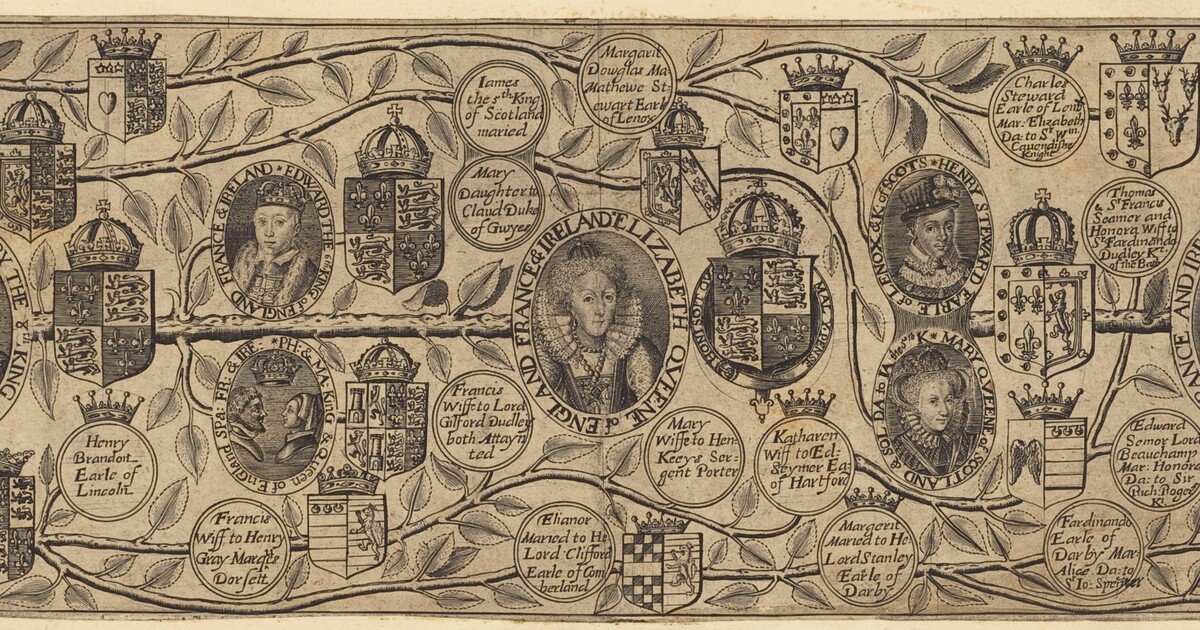 Iames
the 5th King
of Scotland
maried
Mary
Daughter to
Claud Duke
of Gwyes
Margarit
Douglas Ma
Mathewe St-
ewart Earle
of Lenox
Charles
Steward
Earle of Len
Mar. Elizabeth
Da: to Sr Wm
Cavendishe
Knight
Thomas
& Sr Francis
Seamer and
Honora Wiff to
Sr Ferdinando
Dudley Kt
of the Bath
EDWARD THE 6 KING of ENGLAND FRANCE & IRELAND
ELIZABETH QVEENE of ENGLAND FRANCE & IRELAND
HENRY STEWARD EARLE of LENOX & K of SCOTS
MARY QVEENE of SCOTLAND
PH: & MA: King & Queen of England Spa: FR: & IRE:
THE
KING
Henry
Brandon
Earle of
Lincoln
Francis
Wiffe to Lord
Gilford Dudley
both Attayn
ted
Mary
Wiffe to Hen-
Keeys Ser-
gent Porter
Katharen
Wiff to Ed:
Seymer Ea:
of Hartford
Edward
Semor Lord
Beauchamp
Mar: Honora
Da: to Sir
Rich: Roger
Kt
Francis
Wiff to Henry
Gray Marqes
Dorsett
Elianor
Maried to He
Lord Clifford
Earle of Com
berland
Margerit
Maried to He
Lord Stanley
Earle of
Darby
Ferdinando
Earle of
Darby Mar-
Alice Da: to
Sr Io: Spenser